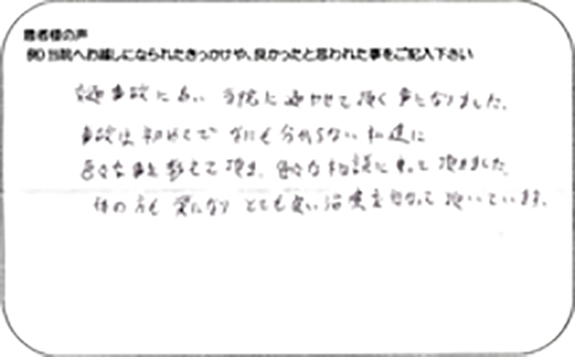 患者様の声
例）当院へお越しになられたきっかけや、良かったと思われた事をご記入下さい
交通事故に あい 当院に通わせて頂く事になりました。
事故は初めてで なにも分からない私達に
色々な事を教えて頂き、色々な相談に乗って頂きました。
体の方も 楽になり とても良い治療を 行なって頂いています。